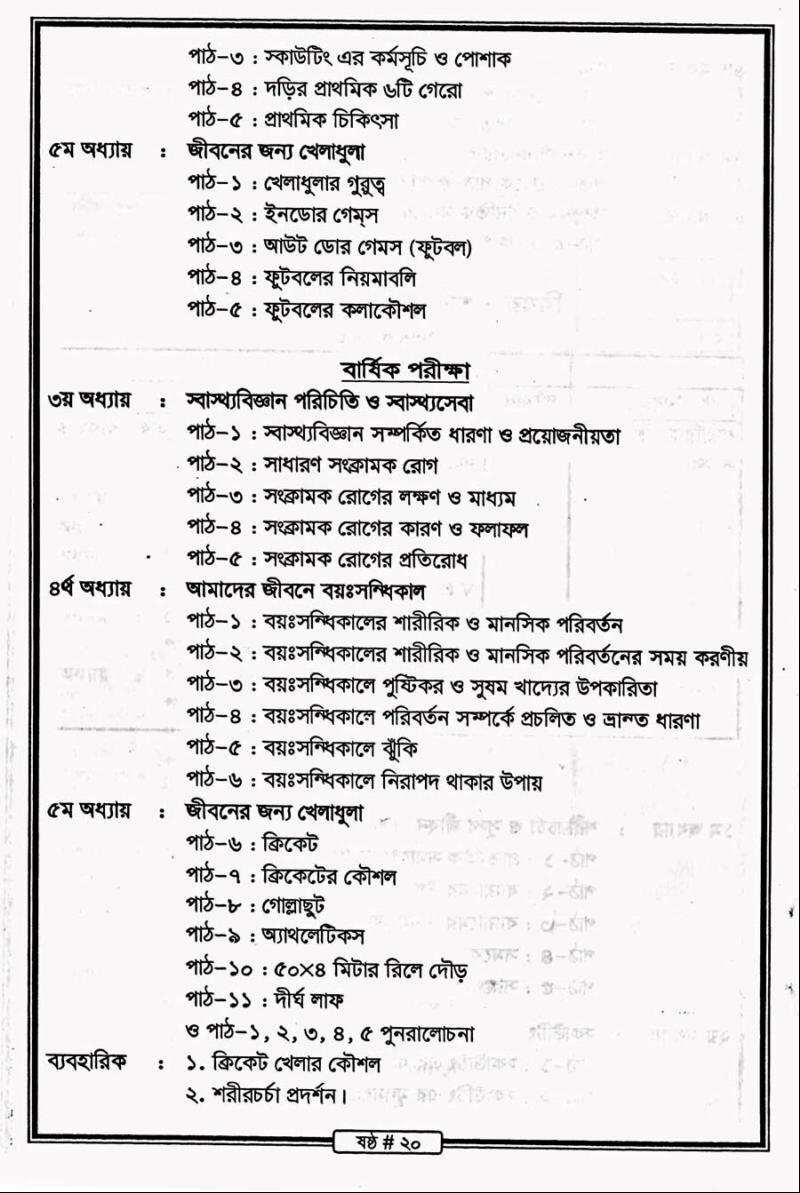 পাঠ-৩ : স্কাউটিং এর কর্মসূচি ও পোশাক
পাঠ-৪ : দড়ির প্রাথমিক ৬টি গেরো
পাঠ-৫ : প্রাথমিক চিকিৎসা
৫ম অধ্যায় : জীবনের জন্য খেলাধুলা
পাঠ-১ : খেলাধুলার গুরুত্ব
পাঠ-২ : ইনডোর গেম্‌স
পাঠ-৩ : আউট ডোর গেমস (ফুটবল)
পাঠ-৪ : ফুটবলের নিয়মাবলি
পাঠ-৫ : ফুটবলের কলাকৌশল
বার্ষিক পরীক্ষা
৩য় অধ্যায় : স্বাস্থ্যবিজ্ঞান পরিচিতি ও স্বাস্থ্যসেবা
পাঠ-১ : স্বাস্থ্যবিজ্ঞান সম্পর্কিত ধারণা ও প্রয়োজনীয়তা
পাঠ-২ : সাধারণ সংক্রামক রোগ
পাঠ-৩ : সংক্রামক রোগের লক্ষণ ও মাধ্যম
পাঠ-৪ : সংক্রামক রোগের কারণ ও ফলাফল
পাঠ-৫ : সংক্রামক রোগের প্রতিরোধ
৪র্থ অধ্যায় : আমাদের জীবনে বয়ঃসন্ধিকাল
পাঠ-১ : বয়ঃসন্ধিকালের শারীরিক ও মানসিক পরিবর্তন
পাঠ-২ : বয়ঃসন্ধিকালের শারীরিক ও মানসিক পরিবর্তনের সময় করণীয়
পাঠ-৩ : বয়ঃসন্ধিকালে পুষ্টিকর ও সুষম খাদ্যের উপকারিতা
পাঠ-৪ : বয়ঃসন্ধিকালে পরিবর্তন সম্পর্কে প্রচলিত ও ভ্রান্ত ধারণা
পাঠ-৫ : বয়ঃসন্ধিকালে ঝুঁকি
পাঠ-৬ : বয়ঃসন্ধিকালে নিরাপদ থাকার উপায়
৫ম অধ্যায় : জীবনের জন্য খেলাধুলা
পাঠ-৬ : ক্রিকেট
পাঠ-৭ : ক্রিকেটের কৌশল
পাঠ-৮ : গোল্লাছুট
পাঠ-৯ : অ্যাথলেটিকস
পাঠ-১০ : ৫০×৪ মিটার রিলে দৌড়
পাঠ-১১ : দীর্ঘ লাফ
ও পাঠ-১, ২, ৩, ৪, ৫ পুনরালোচনা
ব্যবহারিক : ১. ক্রিকেট খেলার কৌশল
২. শরীরচর্চা প্রদর্শন।
ষষ্ঠ # ২০